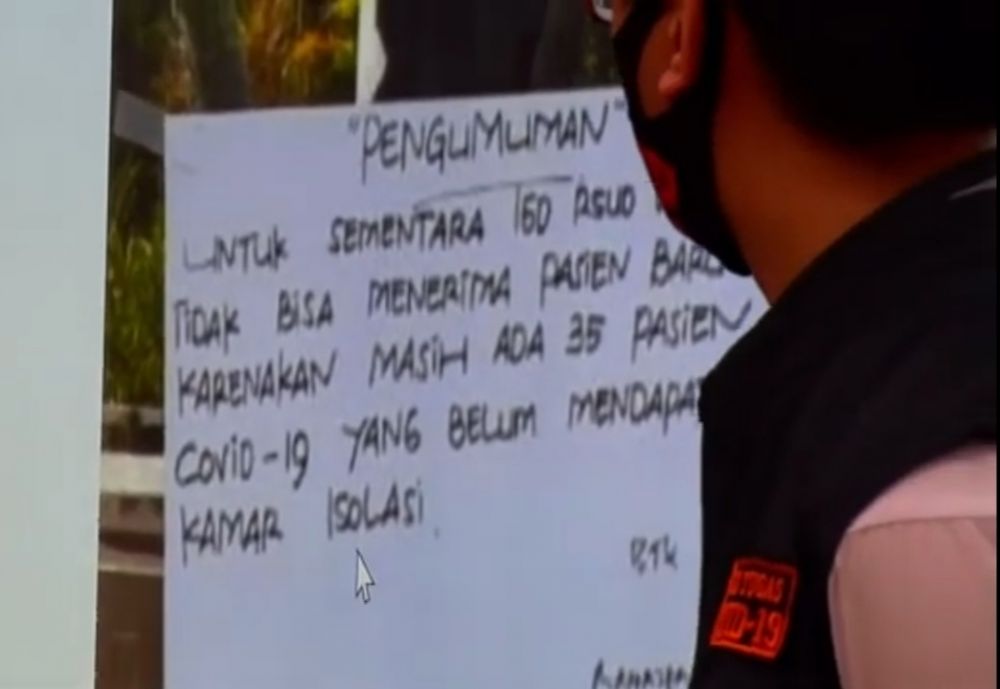 "PENGUMUMAN"
UNTUK SEMENTARA IGD RSUD
TIDAK BISA MENERIMA PASIEN BARU
KARENAKAN MASIH ADA 35 PASIEN
COVID-19 YANG BELUM MENDAPAT
KAMAR ISOLASI.
TUGAS
ID-19